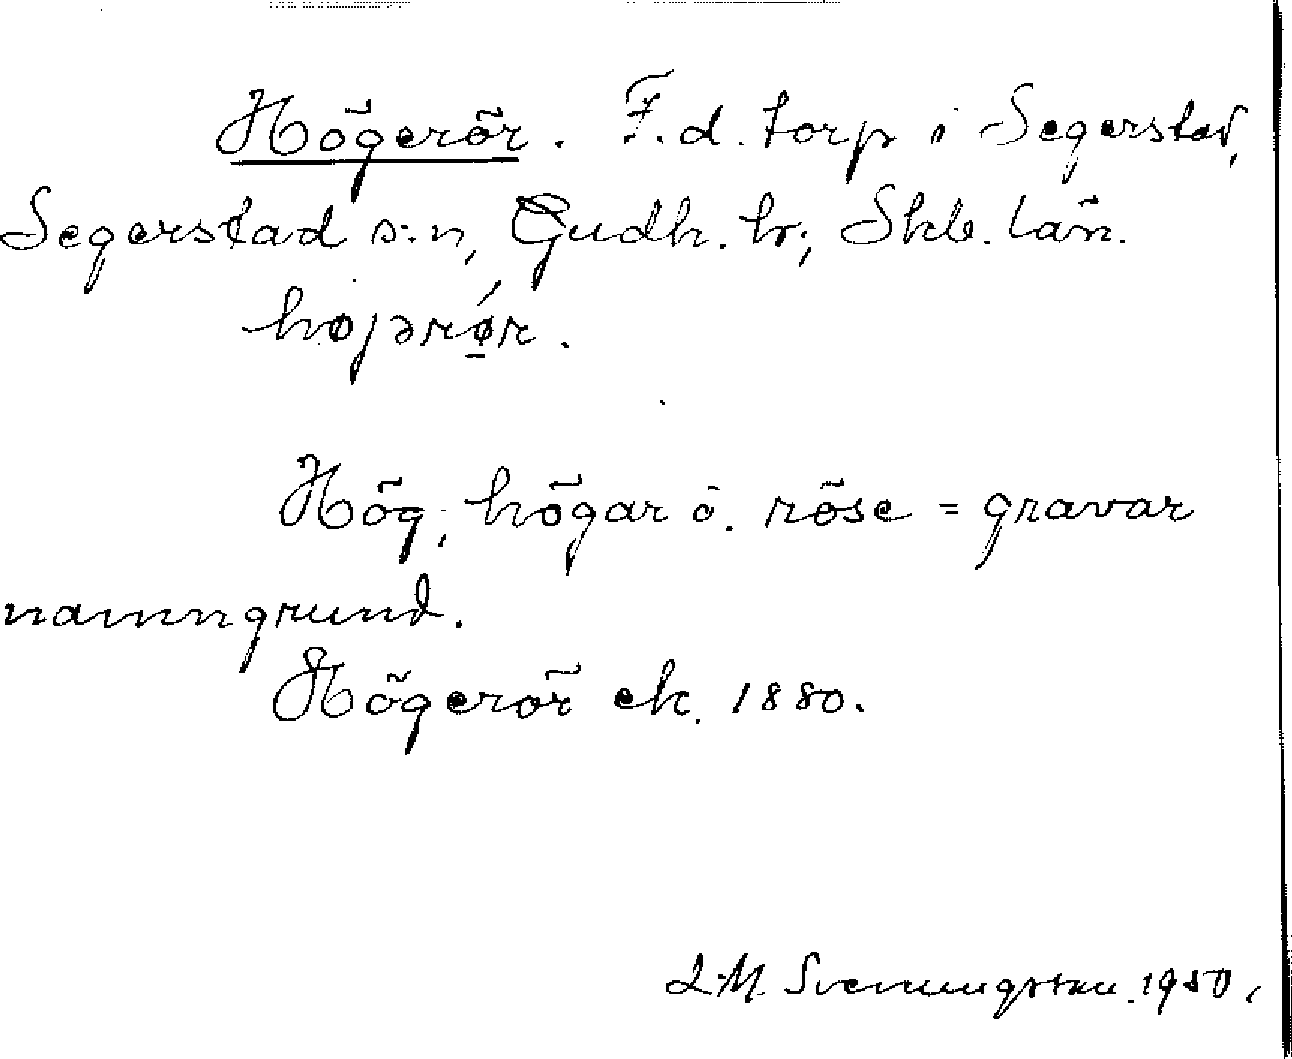 Högerör. F.d. torp i Segerstad,
Segerstad s:n, Gudh. hr; Skb. län.
højərǿr.
Hög, högar o. röse = gravar
namngrund.
Högerör ek. 1880.
L.M. Svenungsson. 1950.